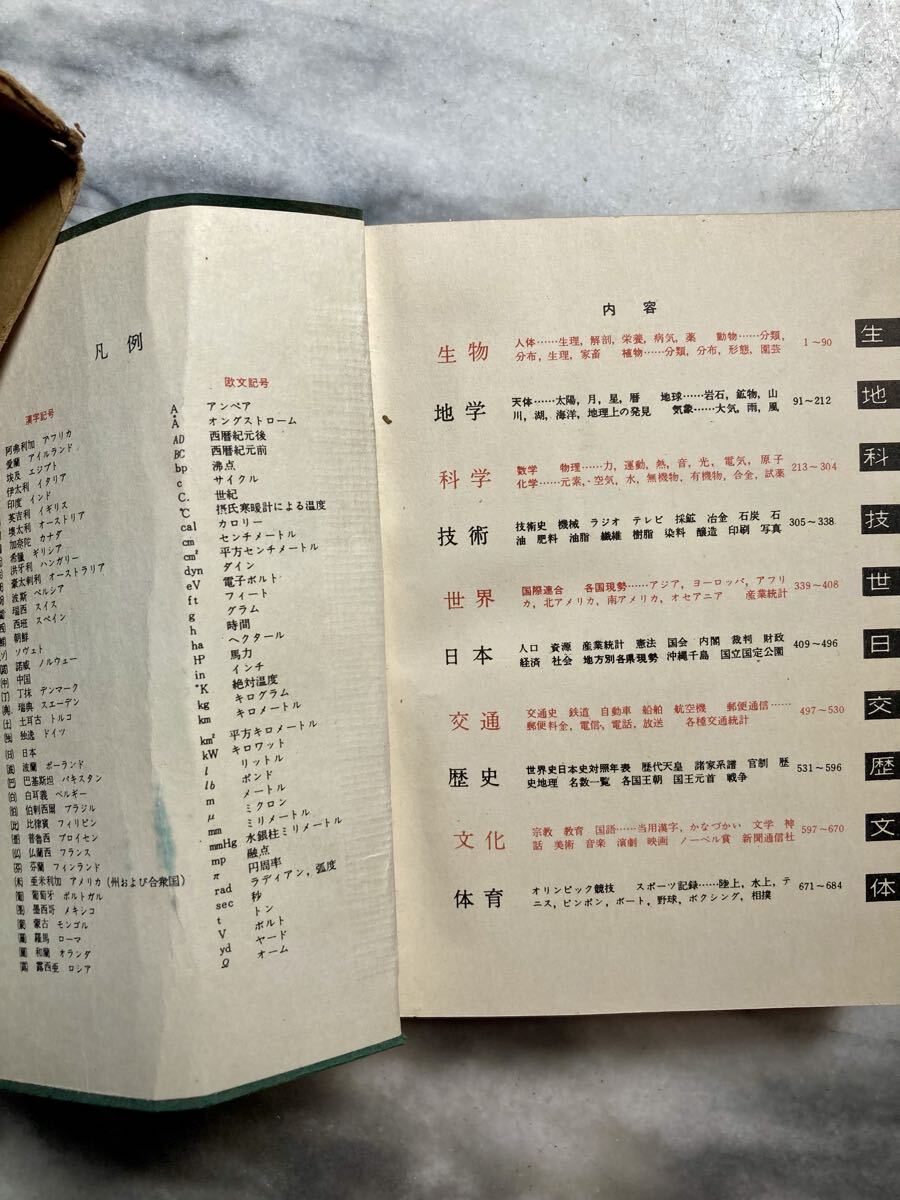 凡例
漢字記号
阿弗利加 アフリカ
愛蘭 アイルランド
埃及 エジプト
伊太利 イタリア
印度 インド
英吉利 イギリス
墺太利 オーストリア
加奈陀 カナダ
希臘 ギリシア
洪牙利 ハンガリー
豪太剌利 オーストラリア
波斯 ペルシア
瑞西 スイス
西班 スペイン
朝鮮
ソヴェト
諾威 ノルウェー
中国
丁抹 デンマーク
瑞典 スエーデン
土耳古 トルコ
独逸 ドイツ
日本
波蘭 ポーランド
巴基斯坦 パキスタン
白耳義 ベルギー
伯剌西爾 ブラジル
比律賓 フィリピン
普魯西 プロイセン
仏蘭西 フランス
芬蘭 フィンランド
亜米利加 アメリカ(州および合衆国)
葡萄牙 ポルトガル
墨西哥 メキシコ
蒙古 モンゴル
羅馬 ローマ
和蘭 オランダ
露西亜 ロシア
欧文記号
A アンペア
Å オングストローム
AD 西暦紀元後
BC 西暦紀元前
bp 沸点
c サイクル
C. 世紀
℃ 摂氏寒暖計による温度
cal カロリー
cm センチメートル
cm² 平方センチメートル
dyn ダイン
eV 電子ボルト
ft フィート
g グラム
h 時間
ha ヘクタール
HP 馬力
in インチ
°K 絶対温度
kg キログラム
km キロメートル
km² 平方キロメートル
kW キロワット
l リットル
lb ポンド
m メートル
μ ミクロン
mm ミリメートル
mmHg 水銀柱ミリメートル
mp 融点
π 円周率
rad ラディアン,弧度
sec 秒
t トン
V ボルト
yd ヤード
Ω オーム
内容
生物 人体……生理,解剖,栄養,病気,薬 動物……分類,
分布,生理,家畜 植物……分類,分布,形態,園芸 1~90
地学 天体……太陽,月,星,暦 地球……岩石,鉱物,山
川,湖,海洋,地理上の発見 気象……大気,雨,風 91~212
科学 数学 物理……力,運動,熱,音,光,電気,原子
化学……元素,空気,水,無機物,有機物,合金,試薬 213~304
技術 技術史 機械 ラジオ テレビ 採鉱 冶金 石炭 石
油 肥料 油脂 繊維 樹脂 染料 醸造 印刷 写真 305~338
世界 国際連合 各国現勢……アジア,ヨーロッパ,アフリ
カ,北アメリカ,南アメリカ,オセアニア 産業統計 339~408
日本 人口 資源 産業統計 憲法 国会 内閣 裁判 財政
経済 社会 地方別各県現勢 沖縄千島 国立国定公園 409~496
交通 交通史 鉄道 自動車 船舶 航空機 郵便通信……
郵便料金,電信,電話,放送 各種交通統計 497~530
歴史 世界史日本史対照年表 歴代天皇 諸家系譜 官制 歴
史地理 名数一覧 各国王朝 国王元首 戦争 531~596
文化 宗教 教育 国語……当用漢字,かなづかい 文学 神
話 美術 音楽 演劇 映画 ノーベル賞 新聞通信社 597~670
体育 オリンピック競技 スポーツ記録……陸上,水上,テ
ニス,ピンポン,ボート,野球,ボクシング,相撲 671~684
生
地
科
技
世
日
交
歴
文
体